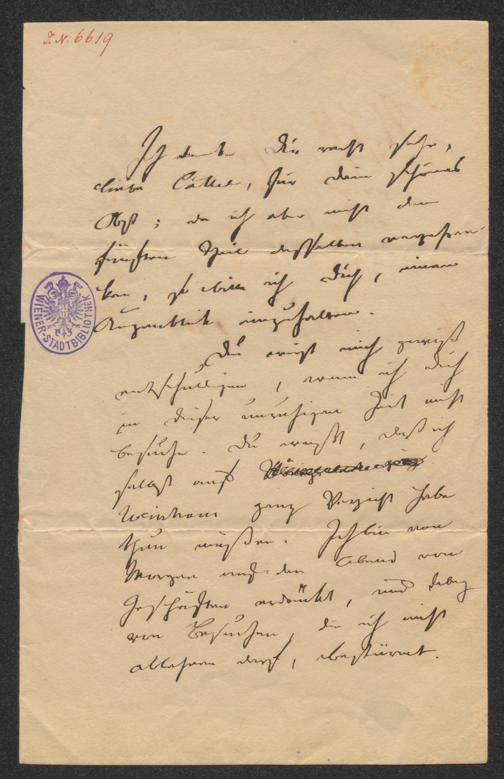 I. N. 6619
Ich danke Dir recht sehr,
liebe Cottel, für Dein schönes
Obst; da ich aber nicht den
fünften Teil desselben verzehren
kan, so bitte ich Dich, einen
Augenblik einzuhalten.
WIENER-STADTBIBLIOTHEK
Du wirst mich gewiß
entschuldigen, wenn ich Dich
in dieser unruhigen Zeit nicht
besuche. Du weißt, daß ich
selbst auf
Weinhaus ganz Verzicht habe
thun müßen. Ich bin von
Morgen auf den Abend von
Geschäften erdrükt, und dabey
von Besuchen, die ich nicht
ablehnen darf, bestürmt.